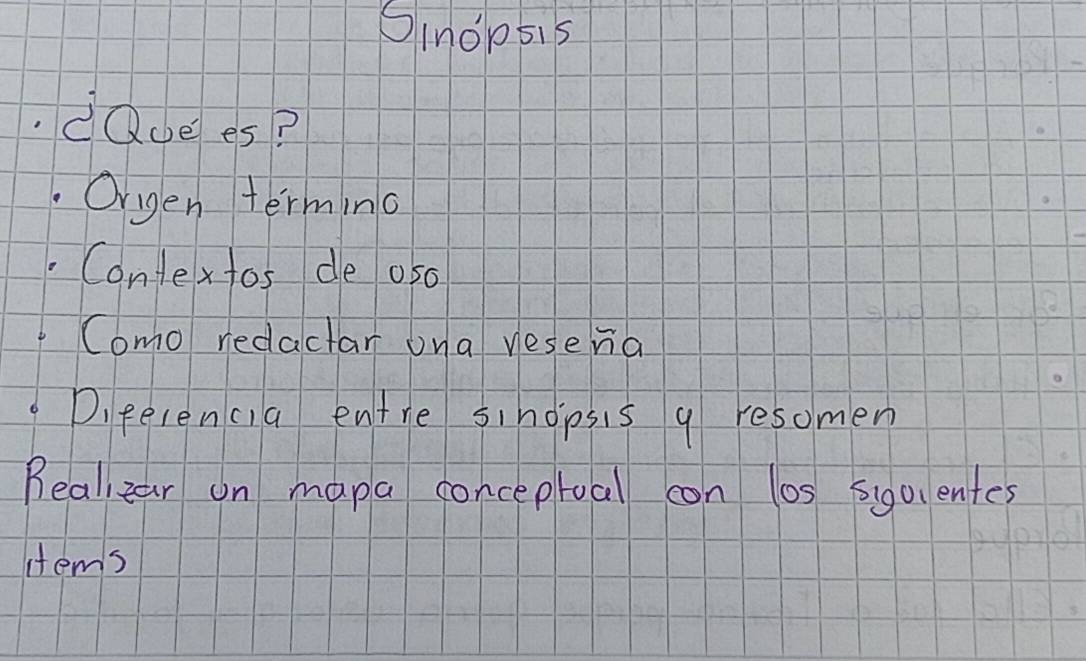 Sinópsis
· ¿Qué es?
· Origen término
· Contextos de uso
· Como redactar una reseña
· Diferencia entre sinópsis y resumen
Realizar un mapa conceptual con los siguientes
items